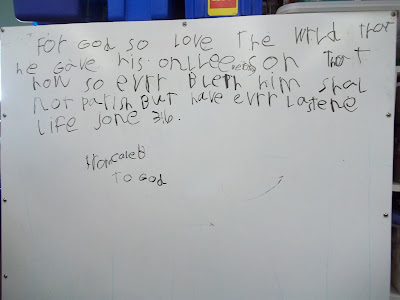 For God so love the wrld that
he gave his onllee son that
how so evrr bleth him shal
not parish but have evrr Lastene
Life Jone 3:16.
From Caleb
To God